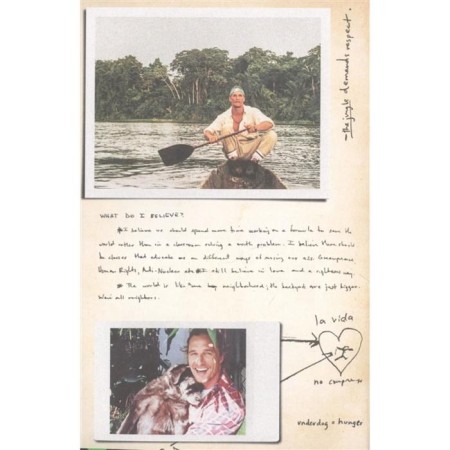 —the jungle demands respect.
WHAT DO I BELIEVE?
I believe we should spend more time working on a formula to save the
world rather than in a classroom solving a math problem. I believe there should
be classes that educate me on different ways of
Human Rights, Anti-Nuclear I still believe in love and a righteous way.
The world is like one big neighborhood; the backyard are just bigger.
We're all neighbors.
la vida
no
underdog = hunger